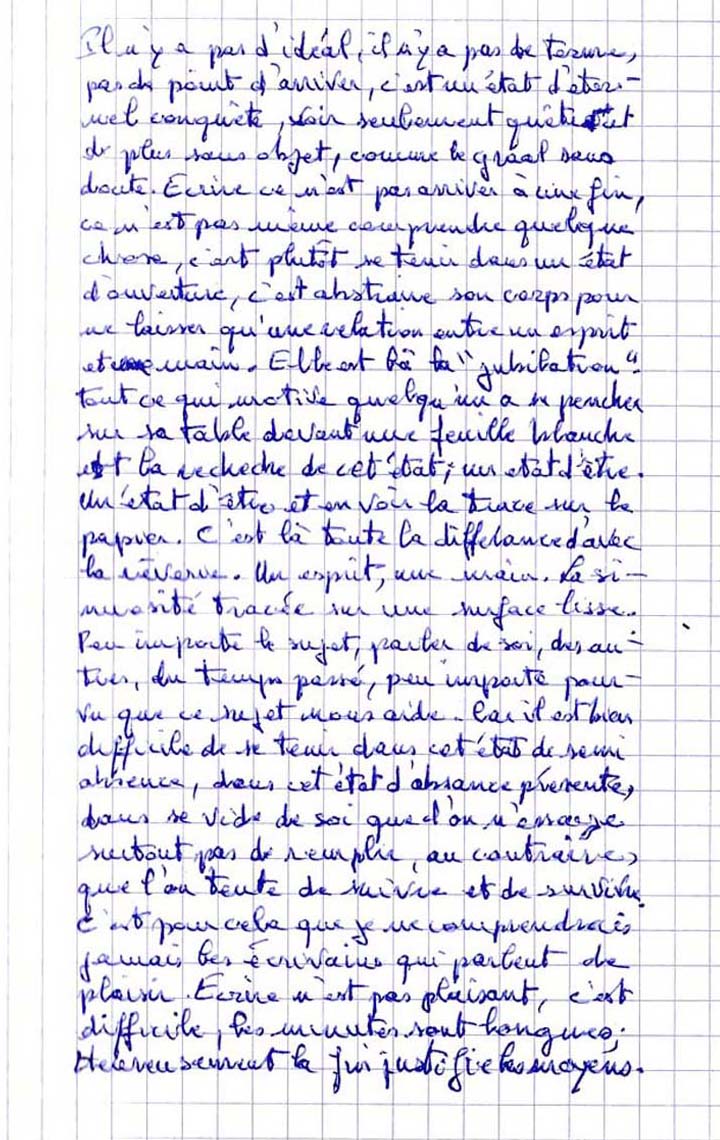 Il n'y a pas d'idéal, il n'y a pas de terme,
pas de point d'arriver, c'est un état d'éter-
nel conquête, voir seulement quête et
de plus sans objet, comme le graal sans
doute. Ecrire ce n'est pas arriver à une fin,
ce n'est pas même comprendre quelque
chose, c'est plutôt se tenir dans un état
d'ouverture, c'est abstraire son corps pour
ne laisser qu'une relation entre un esprit
et une main. Elle est là la "jubilation"
tout ce qui motive quelqu'un a se pencher
sur sa table devant une feuille blanche
est la recheche de cet état; un etat d'être.
Un état d'être et en voir la trace sur le
papier. C'est là toute la différance d'avec
la rêverie. Un esprit, une main. La si-
nuosité tracée sur une surface lisse.
Peu importe le sujet, parler de soi, des au-
tres, du temps passé, peu importe pour-
vu que ce sujet nous aide. Car il est bien
difficile de se tenir dans cet état de semi
absence, dans cet état d'absance présente,
dans se vide de soi que l'on n'essaye
surtout pas de remplir, au contraire,
que l'on tente de suivre et de survivre.
C'est pour cela que je ne comprendrais
jamais les écrivains qui parlent de
plaisir. Ecrire n'est pas plaisant, c'est
difficile, les minutes sont longues;
Heureusement la fin justifie les moyens.